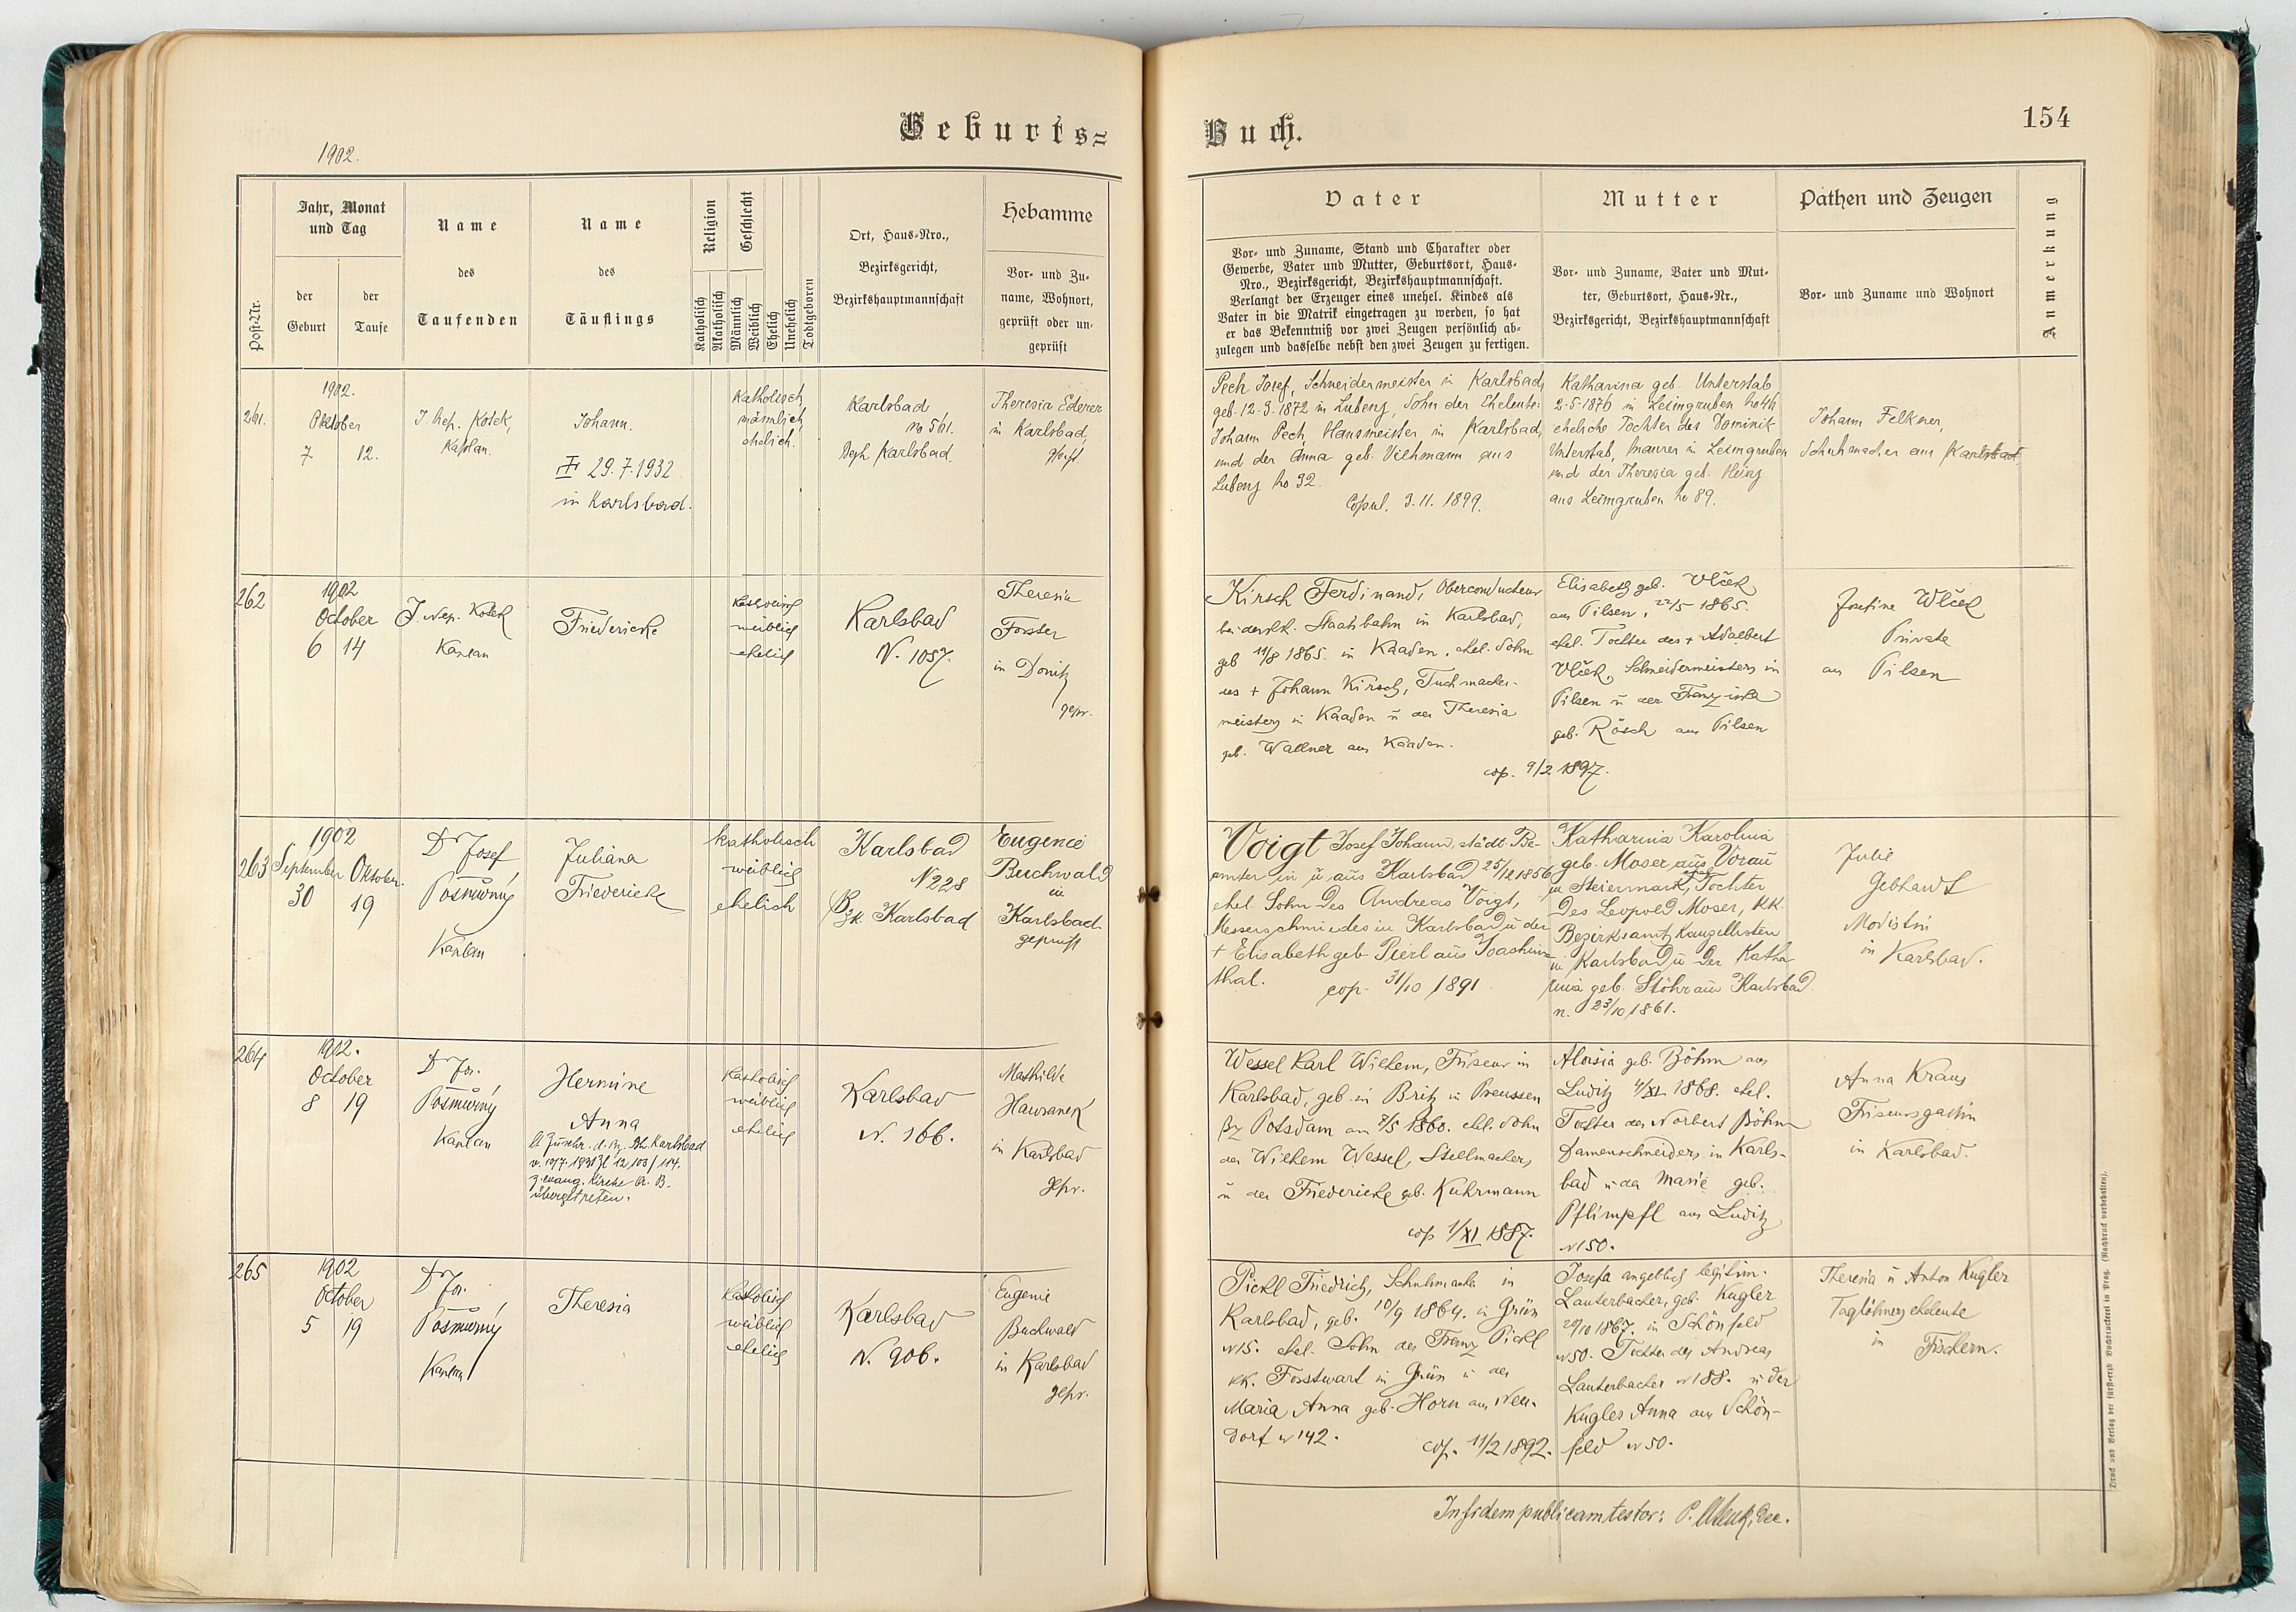 Geburts-Buch.
154
1902.
Post-Nr.
Jahr, Monat
und Tag
der
Geburt
der
Taufe
Name
des
Taufenden
Name
des
Täuflings
Religion
Katholisch
Akatholisch
Geschlecht
Männlich
Weiblich
Ehelich
Unehelich
Todtgeboren
Ort, Haus-Nro.,
Bezirksgericht,
Bezirkshauptmannschaft
Hebamme
Vor- und Zu-
name, Wohnort,
geprüft oder un-
geprüft
Vater
Vor- und Zuname, Stand und Charakter oder
Gewerbe, Vater und Mutter, Geburtsort, Haus-
Nro., Bezirksgericht, Bezirkshauptmannschaft.
Verlangt der Erzeuger eines unehel. Kindes als
Vater in die Matrik eingetragen zu werden, so hat
er das Bekenntniß vor zwei Zeugen persönlich ab-
zulegen und dasselbe nebst den zwei Zeugen zu fertigen.
Mutter
Vor- und Zuname, Vater und Mut-
ter, Geburtsort, Haus-Nr.,
Bezirksgericht, Bezirkshauptmannschaft
Pathen und Zeugen
Vor- und Zuname und Wohnort
Anmerkung
261.
1902.
Oktober
7 12.
J. Nep. Kosek,
Kaplan.
Johann.
29.7.1932
in Karlsbad.
Katholisch
männlich
ehelich.
Karlsbad
No 561.
Bzgh. Karlsbad.
Theresia Ederer
in Karlsbad,
gepr.
Pech Josef, Schneidermeister in Karlsbad,
geb. 12.3.1872 in Lubenz, Sohn der Eheleute:
Johann Pech, Hausmeister in Karlsbad,
und der Anna geb. Vilhmann aus
Lubenz No 92.
Copul. 3.11.1899.
Katharina geb. Unterstab
2.5.1876 in Leimgruben No 46
eheliche Tochter des Dominik
Unterstab, Maurer in Leimgruben
und der Theresia geb. Heinz
aus Leimgruben No 89.
Johann Felkner,
Schuhmacher aus Karlsbad.
262
1902
October
6 14
J. Nep. Kosek
Kaplan
Friedericke
Katholisch
weiblich
ehelich
Karlsbad
N. 1057.
Theresia
Forster
in Donitz
gepr.
Kirsch Ferdinand, Oberconducteur
bei der kk. Staatsbahn in Karlsbad,
geb 11/8 1865. in Kaaden. ehel. Sohn
des + Johann Kirsch, Tuchmacher-
meisters in Kaaden u der Theresia
geb. Wallner aus Kaaden.
cop. 9/2 1897.
Elisabeth geb. Vlček
aus Pilsen, 22/5 1865.
ehel. Tochter des + Adalbert
Vlček, Schneidermeisters in
Pilsen u der Franziska
geb. Rösch aus Pilsen
Josefine Wlček
Private
aus Pilsen
263
1902
September Oktober.
30 19
Dr Josef
Posmůrný
Kaplan
Juliana
Friedericke
katholisch
weiblich
ehelich
Karlsbad
N 228
Bzk. Karlsbad
Eugenie
Buchwald
in
Karlsbad
geprüft
Voigt Josef Johann, städt. Be-
amter in u aus Karlsbad 25/12 1856
ehel. Sohn des Andreas Voigt,
Messerschmiedes in Karlsbad u der
+ Elisabeth geb Peierl aus Joachims-
thal.
cop. 31/10 1891
Katharina Karolina
geb. Moser aus Vorau
in Steiermark, ehel. Tochter
des Leopold Moser, kk.
Bezirksamtskanzellisten
in Karlsbad u der Katha
rina geb. Stöhr aus Karlsbad
n. 23/10 1861.
Julie
Gebhardt
Modistin
in Karlsbad.
264
1902.
October
8 19
Dr Jos.
Posmůrný
Kaplan
Hermine
Anna
lt Zuschr. d. Bz. Bh. Karlsbad
v. 10/7 1931 Zl 12.103/114.
z. evang. Kirche A. B.
übergetreten.
Katholisch
weiblich
ehelich
Karlsbad
N. 166.
Mathilde
Hawranek
in Karlsbad
gepr.
Wessel Karl Wilhelm, Friseur in
Karlsbad, geb. in Britz in Preussen
Bz Potsdam am 7/5 1860. ehel. Sohn
des Wilhelm Wessel, Stellmachers
u der Friedericke geb. Kuhrmann
cop 1/XI 1887.
Aloisia geb. Böhm aus
Luditz 4/XI 1868. ehel.
Tochter des Norbert Böhm
Damenschneiders in Karls-
bad u der Marie geb.
Pflimpfl aus Luditz
N 150.
Anna Kraus
Friseursgattin
in Karlsbad.
265
1902
October
5 19
Dr Jos.
Posmůrný
Kaplan
Theresia
Katholisch
weiblich
ehelich
Karlsbad
N. 906.
Eugenie
Buchwald
in Karlsbad
gepr.
Pickl Friedrich, Schuhmacher in
Karlsbad, geb. 10/9 1864. in Grün
N 15. ehel. Sohn des Franz Pickl
kk. Forstwart in Grün u der
Maria Anna geb. Horn aus Neu-
dorf N 142.
cop. 11/2 1892.
Josefa angeblich legitim.
Lauterbacher, geb. Kugler
29/10 1867. in Schönfeld
N 50. Tochter des Andreas
Lauterbacher N 188. u der
Kugler Anna aus Schön-
feld N 50.
Theresia u Anton Kugler
Taglöhnerseheleute
in Fischern.
In fidem publicam testor: P. Dec.
Druck und Verlag der fürst-erzb. Buchdruckerei in Prag. (Nachdruck vorbehalten).